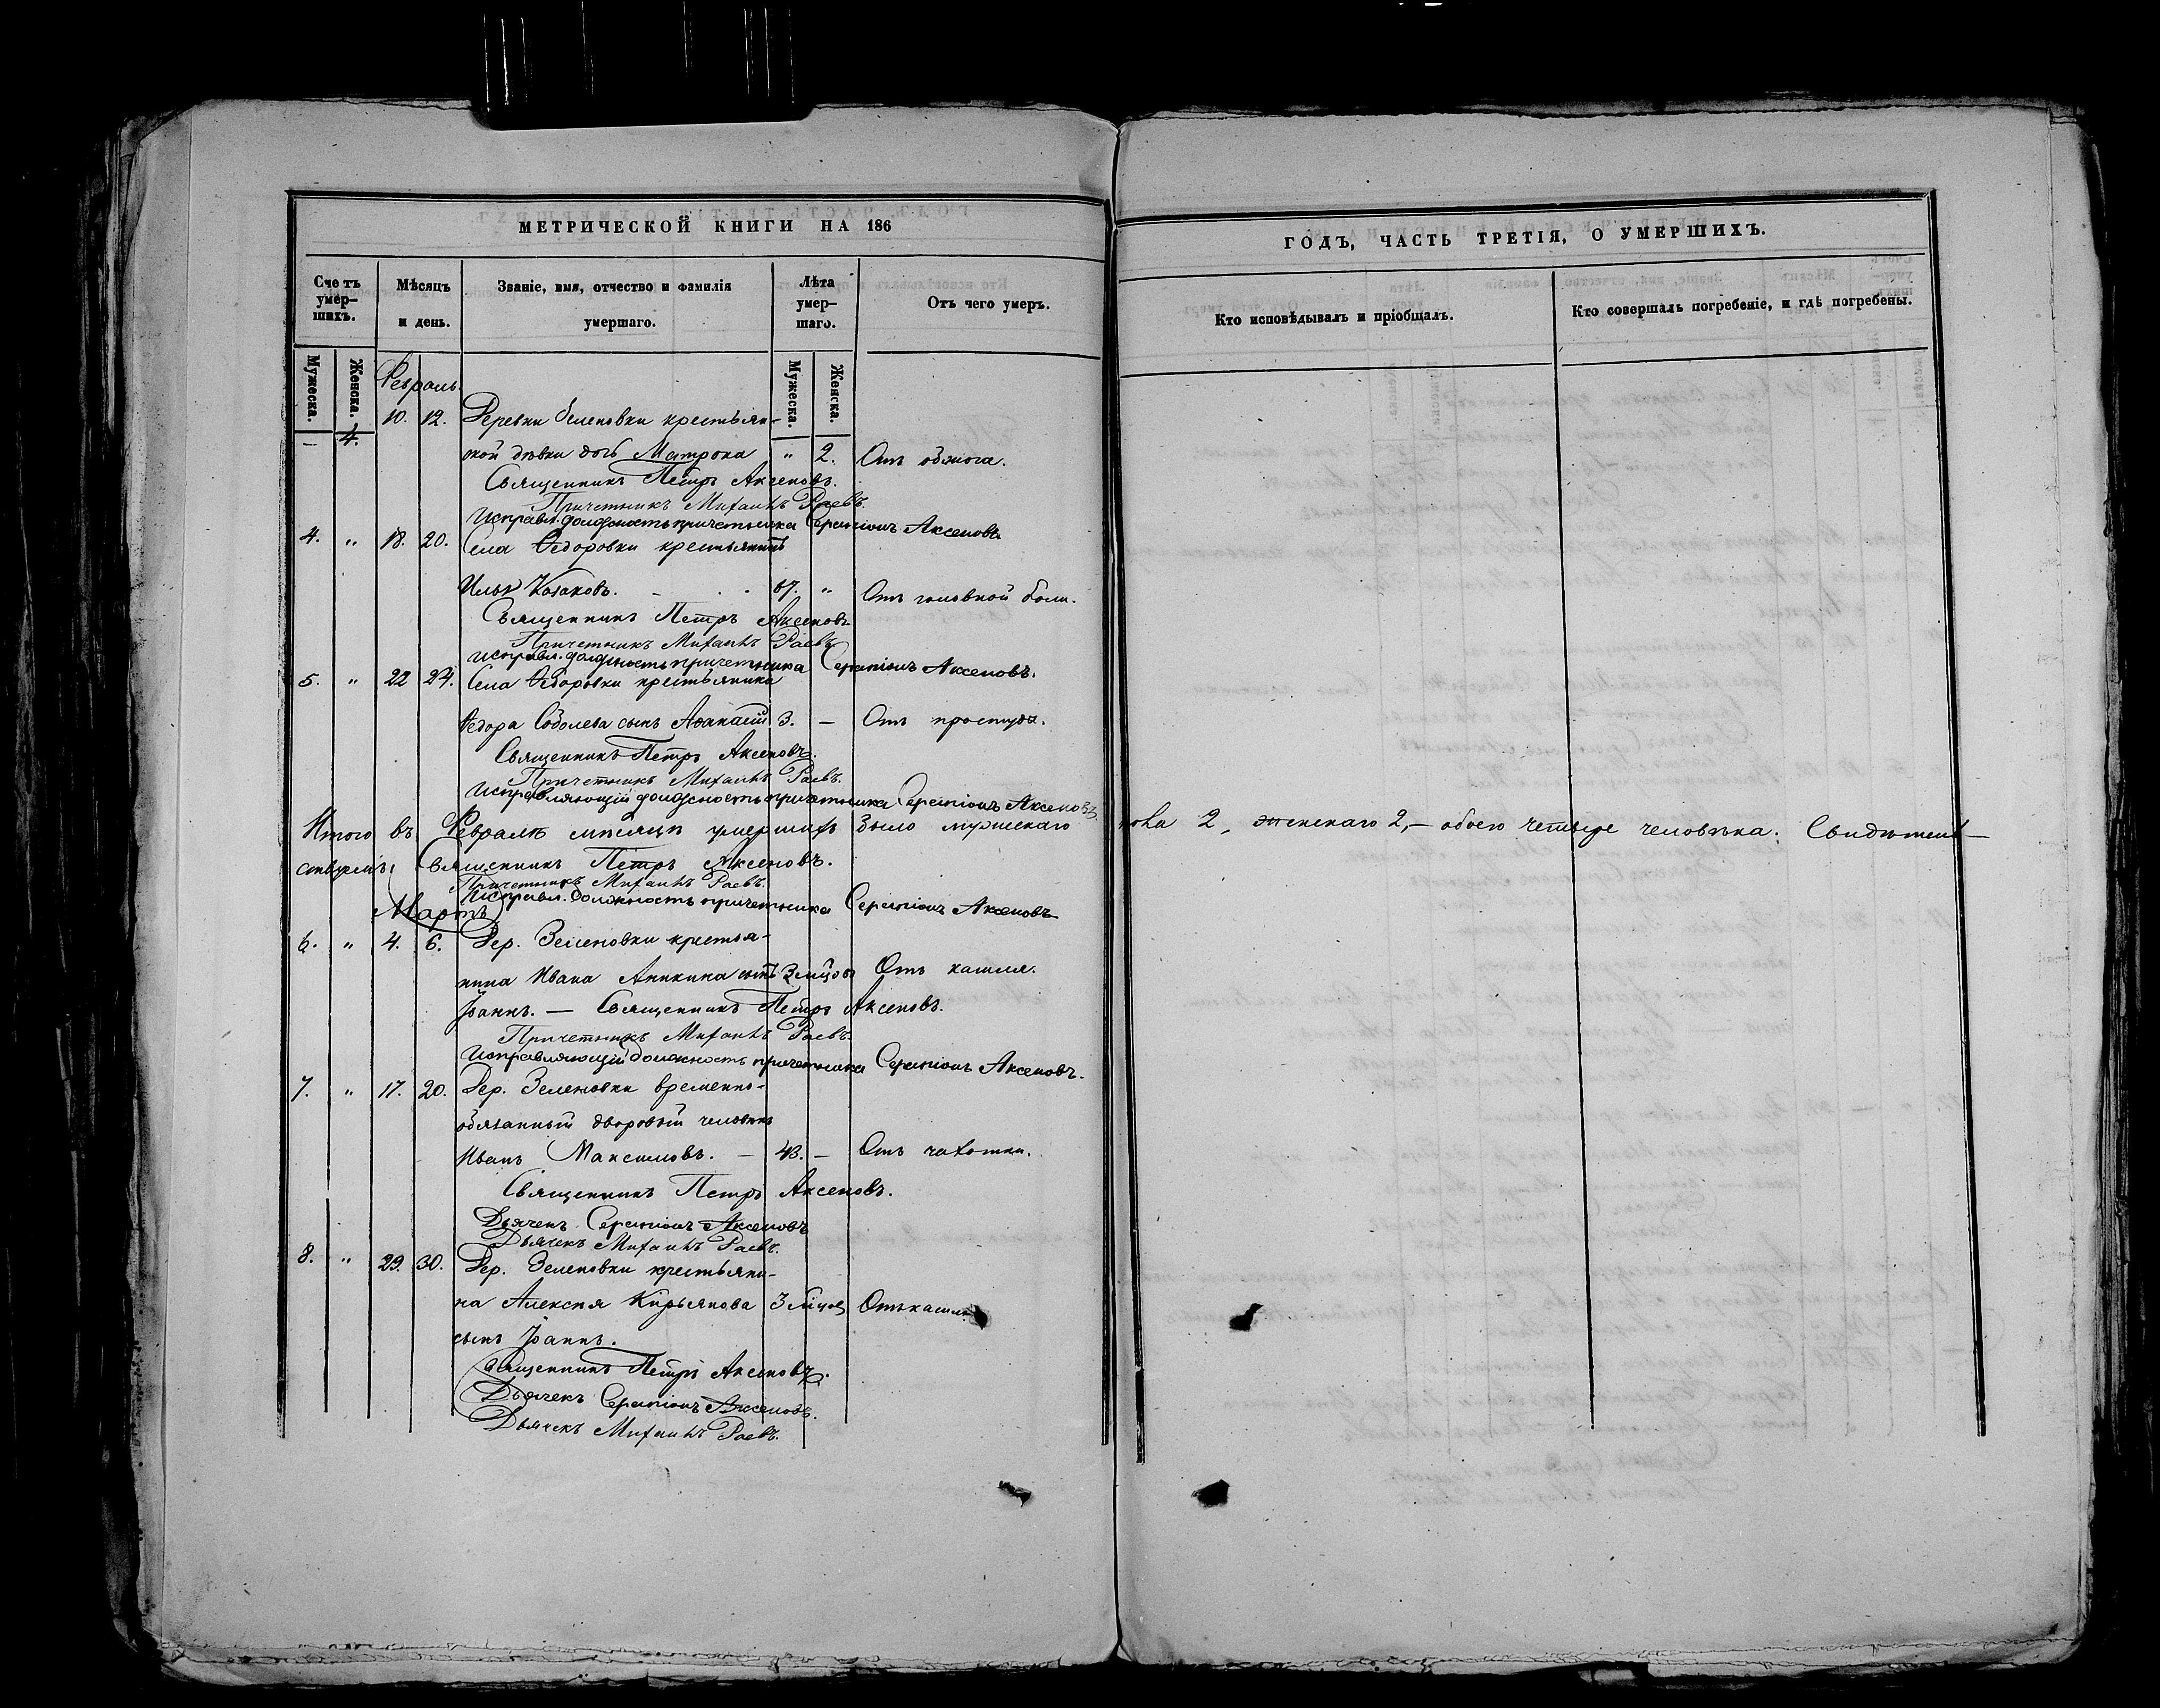 МЕТРИЧЕСКОЙ КНИГИ НА 186
ГОДЪ, ЧАСТЬ ТРЕТІЯ, О УМЕРШИХЪ.
Счетъ умер-шихъ.
Мѣсяцъ и день.
Званіе, имя, отчество и фамилія умершаго.
Лѣта умер-шаго.
Отъ чего умеръ.
Кто исповѣдывалъ и пріобщалъ.
Кто совершалъ погребеніе, и гдѣ погребены.
Мужеска. Женска. Мужеска. Женска.
Февраль.
— 4. 10. 12. Деревни Зеленовки крестьян-
ской дѣвки дочь Матрона " 2. Отъ обжога.
Священникъ Петръ Аксеновъ.
Причетникъ Михаилъ Раевъ.
Исправл. должность причетника Серапіонъ Аксеновъ
4. " 18. 20. Села Ѳедоровки крестьянинъ
Илья Казаковъ. 87. " Отъ головной боли.
Священникъ Петръ Аксеновъ
Причетникъ Михаилъ Раевъ
Исправл. должность причетника Серапіонъ Аксеновъ.
5. " 22 24. Села Ѳедоровки крестьянина
Ѳедора Соболева сынъ Аѳанасій 3. — Отъ простуды.
Священникъ Петръ Аксеновъ.
Причетникъ Михаилъ Раевъ.
Исправляющій должность причетника Серапіонъ Аксеновъ
Итого въ Февралѣ мѣсяцѣ умершихъ было мужескаго пола 2, женскаго 2,— обоего четыре человѣка. Свидѣтель-
ствуемъ: Священникъ Петръ Аксеновъ.
Причетникъ Михаилъ Раевъ.
Исправл. должность причетника Серапіонъ Аксеновъ
Мартъ
6. " 4. 6. Дер. Зеленовки крестья-
нина Ивана Аникина сынъ Отъ кашля.
Іоаннъ. — Священникъ Петръ Аксеновъ.
Причетникъ Михаилъ Раевъ.
Исправляющій должность причетника Серапіонъ Аксеновъ.
7. " 17. 20. Дер. Зеленовки временно-
обязанный дворовый человѣкъ
Иванъ Максимовъ. — 43. — Отъ чахотки.
Священникъ Петръ Аксеновъ.
Дьячекъ Серапіонъ Аксеновъ
Дьячекъ Михаилъ Раевъ.
8. " 29. 30. Дер. Зеленовки крестьяни-
на Алексѣя Кирьянова Отъ кашля
сынъ Іоаннъ.
Священникъ Петръ Аксеновъ.
Дьячекъ Серапіонъ Аксеновъ.
Дьячекъ Михаилъ Раевъ.